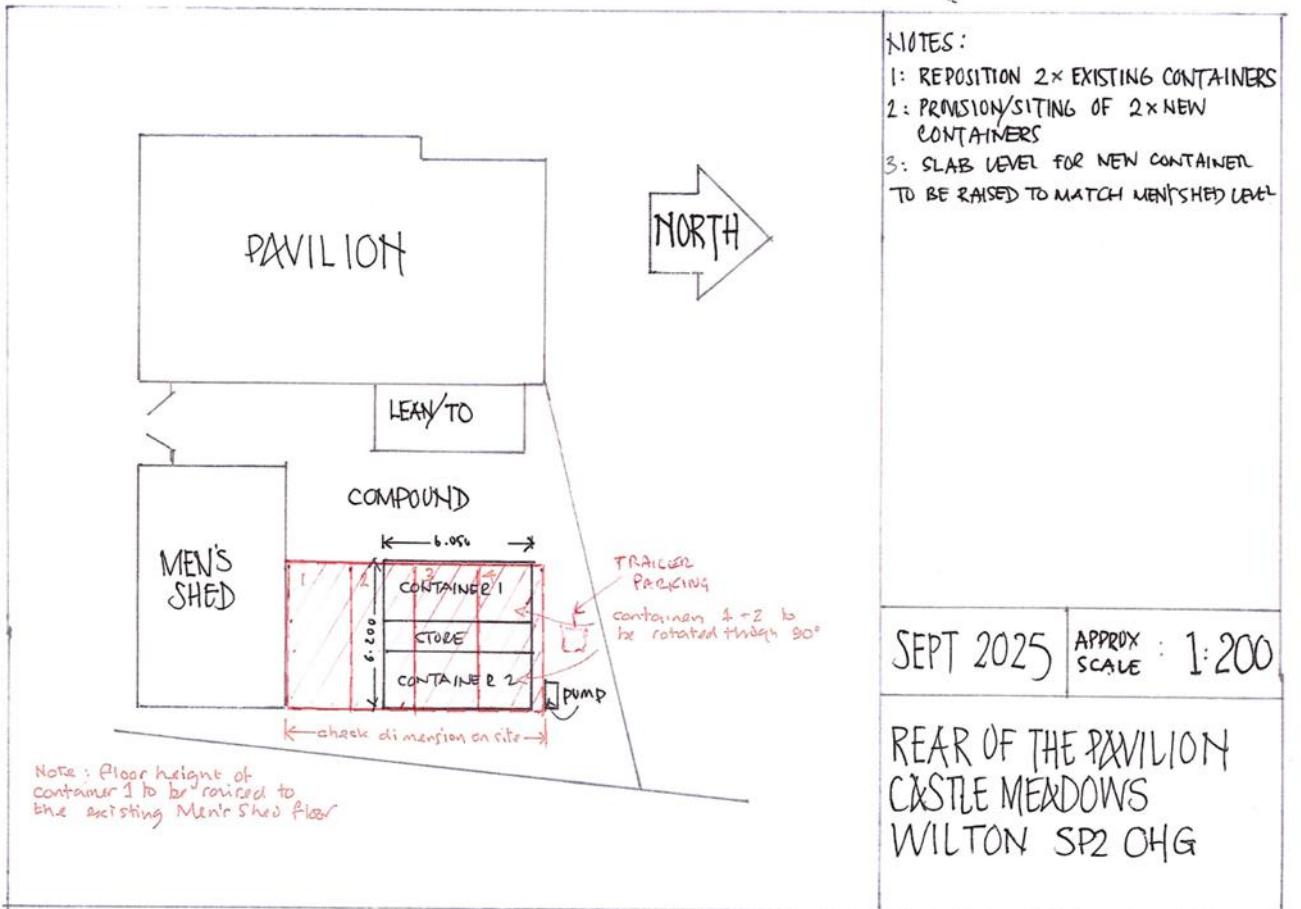 PAVILION
NORTH
LEAN/TO
COMPOUND
MEN'S
SHED
6.056
6.200
1
2
3
4
CONTAINER 1
STORE
CONTAINER 2
PUMP
TRAILER
PARKING
containers 1 + 2 to
be rotated through 90°
check dimension on site
Note: Floor height of
container 1 to be raised to
the existing Men's Shed floor
NOTES:
1: REPOSITION 2x EXISTING CONTAINERS
2: PROVISION/SITING OF 2x NEW
CONTAINERS
3: SLAB LEVEL FOR NEW CONTAINER
TO BE RAISED TO MATCH MEN'SHED LEVEL
SEPT 2025
APPROX
SCALE : 1:200
REAR OF THE PAVILION
CASTLE MEADOWS
WILTON SP2 0HG